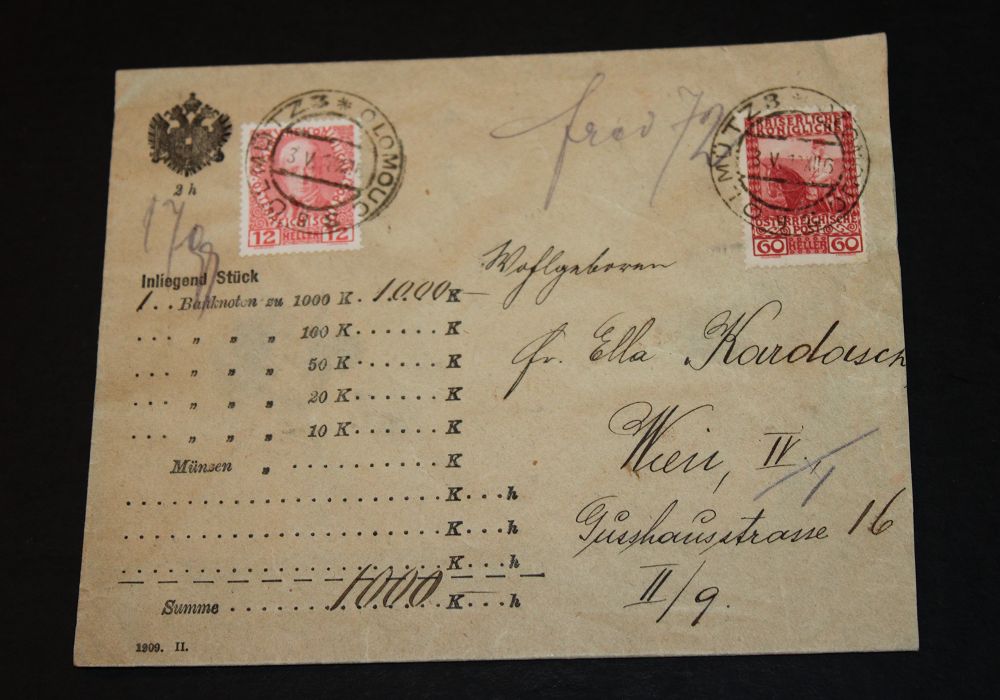 2 h
17 gr
OLMÜTZ 3 * OLOMOUC 3
3.V.
12 HELLER 12
frco 72
OLMÜTZ 3 * OLOMOUC
3.V.
KAISERLICHE
KÖNIGLICHE
ÖSTERREICHISCHE
POST
60 HELLER 60
Inliegend Stück
1 . . Banknoten zu 1000 K . 1000 K —
. . . „ „ „ 100 K . . . . . . K
. . . „ „ „ 50 K . . . . . . K
. . . „ „ „ 20 K . . . . . . K
. . . „ „ „ 10 K . . . . . . K
Münzen „ . . . . . . . . . . K
. . . . . . . . . . . . . . . . . . . . . . K . . . h
. . . . . . . . . . . . . . . . . . . . . . K . . . h
. . . . . . . . . . . . . . . . . . . . . . K . . . h
Summe . . . . . . . 1000 K — . h
1909. II.
Wohlgeboren
Fr. Ella Kardasch
Wien, IV.,
/1
Gusshausstrasse 16
II/9.